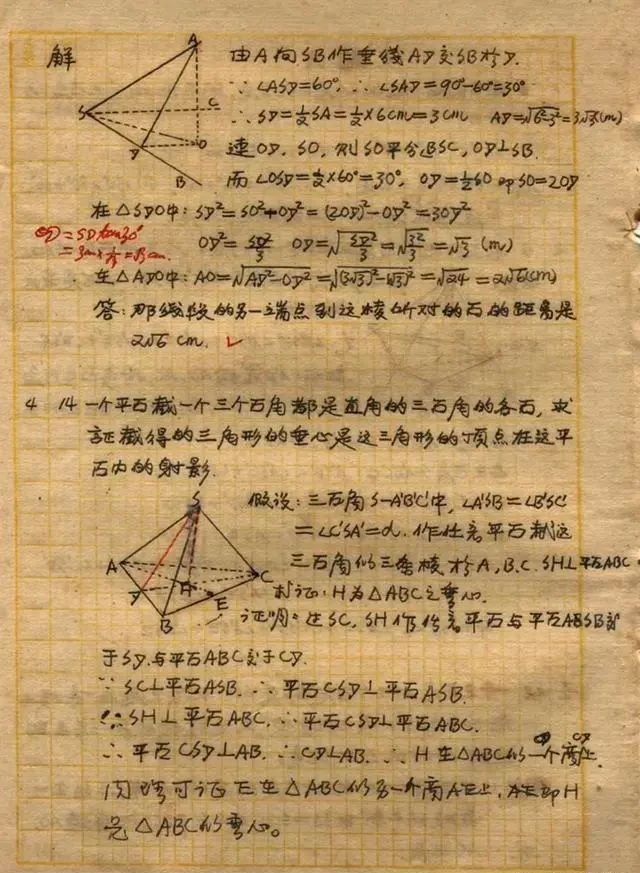 解
由A向SB作垂线AD交SB于D.
∵ ∠ASD=60°, ∴ ∠SAD=90°-60°=30°
∴ SD=½SA=½×6cm=3cm AD=√6²-3²=3√3(cm)
連OD, SO, 则SO平分∠BSC, OD⊥SB.
而∠OSD=½×60°=30°, OD=½SO 即SO=2OD
在△SDO中: SD²=SO²+OD²=(2OD)²-OD²=3OD²
OD=SD tan30°
=3cm×1/√3=√3cm.
OD²=SD²/3 OD=√SD²/3=√3²/3=√3 (m)
在△ADO中: AO=√AD²-OD²=√(3√3)²-(√3)²=√24=2√6(cm)
答: 那线段的另一端点到这棱所对的面的距离是
2√6 cm.
4 14 一个平面截一个三个面角都是直角的三面角的各面, 求
証截得的三角形的垂心是这三角形的顶点在这平
面内的射影.
假设: 三面角S-A'B'C'中, ∠A'SB=∠B'SC'
=∠C'SA'=d. 作任意平面截这
三面角的三条棱于A, B, C. SH⊥平面ABC.
求证: H为△ABC之垂心.
证明: 过SC, SH作任意平面与平面ASB交
于SD. 与平面ABC交于CD.
∵ SC⊥平面ASB. ∴ 平面CSD⊥平面ASB.
∵ SH⊥平面ABC. ∴ 平面CSD⊥平面ABC.
∴ 平面CSD⊥AB. ∴ CD⊥AB. ∴ H在△ABC的一个高CD上.
同理可证H在△ABC的另一个高AE上, 即H
是△ABC的垂心。
S
A
B
C
D
O
S
A
B
C
D
E
H